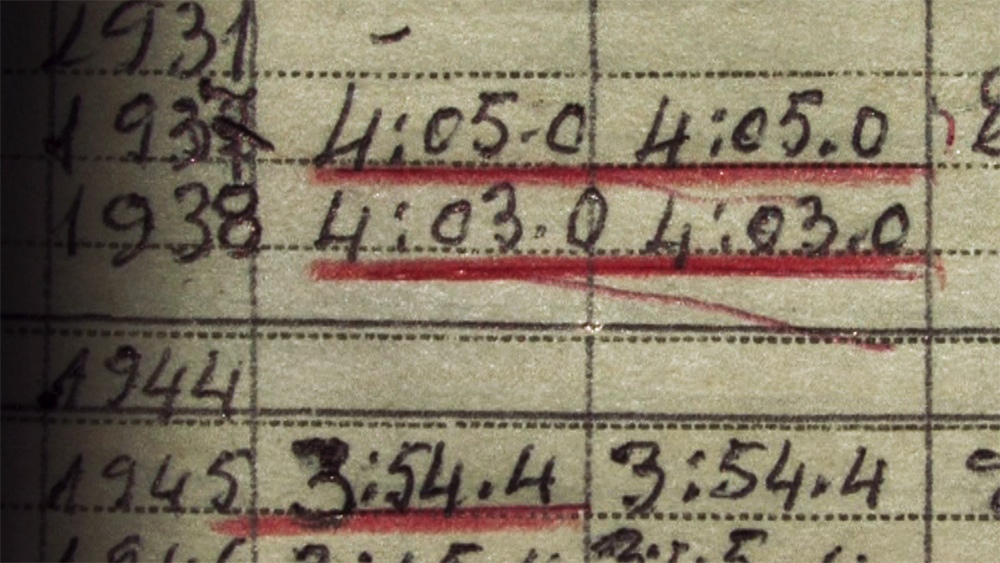 1931 -
1937 4:05.0 4:05.0
1938 4:03.0 4:03.0
1944
1945 3:54.4 3:54.4